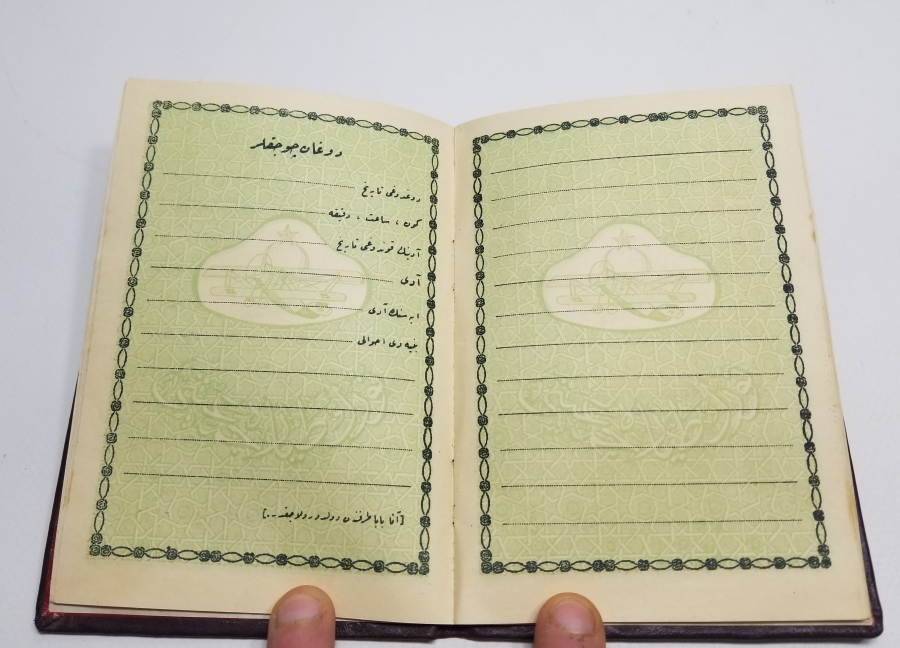 دوغان چوجقلر
دوغدوغی تاریخ
كون ، ساعت ، دقیقه
آدینك قوندوغی تاریخ
آدی
ابه سنك آدی
بنیه وی احوالی
[آنا بابا طرفندن دولدورولاجقدر.]